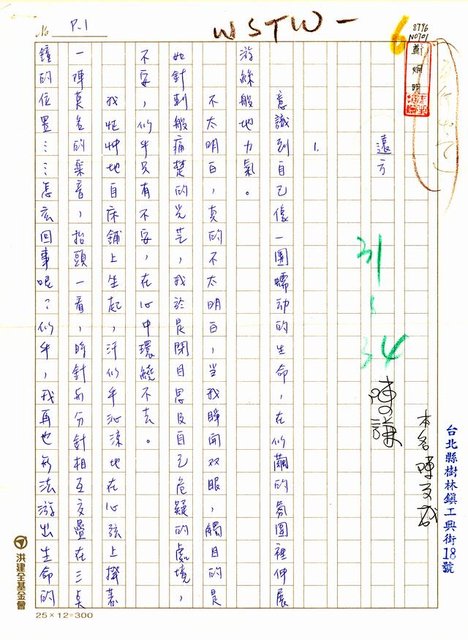 No. P.1
WSTW-
6
8796
N0701
鄭炯明
遠方
31
34
陳謙
本名陳文成
台北縣樹林鎮工興街18號
1.
意識到自己像一團蠕動的生命，在似繭的氛圍裡伸展
游絲般地力氣。
不太明白，真的不太明白，當我睜開双眼，觸目的是
如針刺般痛楚的光芒，我於是閉目思及自己危疑的處境，
不安，似乎只有不安，在心中環繞不去。
我怔忡地自床鋪上坐起，汗似乎沁漾地在心弦上擠著
一陣莫名的樂音，抬頭一看，時針與分針相互交疊在三點
鐘的位置……怎麼回事呢？似乎，我再也無法游出生命的
洪建全基金會
25×12=300